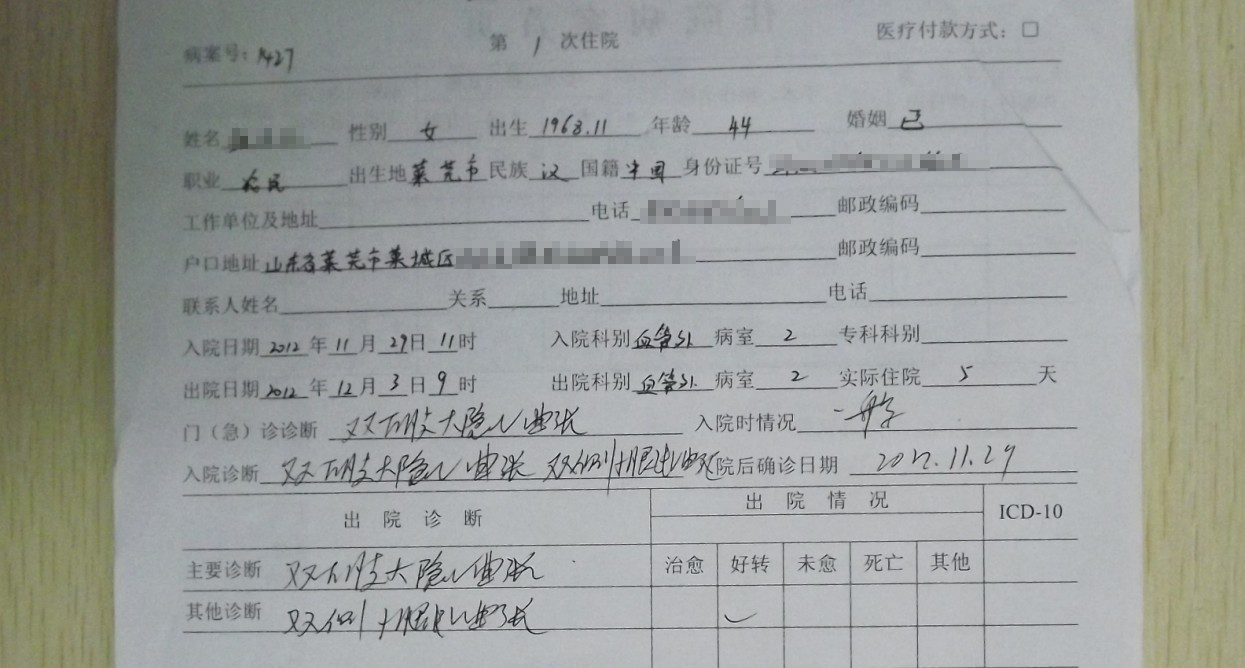 病案号: 1427 第 1 次住院 医疗付款方式: □
姓名 性别 女 出生 1968.11 年龄 44 婚姻 已
职业 农民 出生地 莱芜市 民族 汉 国籍 中国 身份证号
工作单位及地址 电话 邮政编码
户口地址 山东省莱芜市莱城区 邮政编码
联系人姓名 关系 地址 电话
入院日期 2012 年 11 月 29 日 11 时 入院科别 血管外 病室 2 专科科别
出院日期 2012 年 12 月 3 日 9 时 出院科别 血管外 病室 2 实际住院 5 天
门（急）诊诊断 双下肢大隐V曲张 入院时情况 一般
入院诊断 双下肢大隐V曲张 双侧 院后确诊日期 2012.11.29
出院诊断 出院情况 ICD-10
治愈 好转 未愈 死亡 其他
主要诊断 双下肢大隐V曲张
其他诊断 双侧 V曲张 ✓